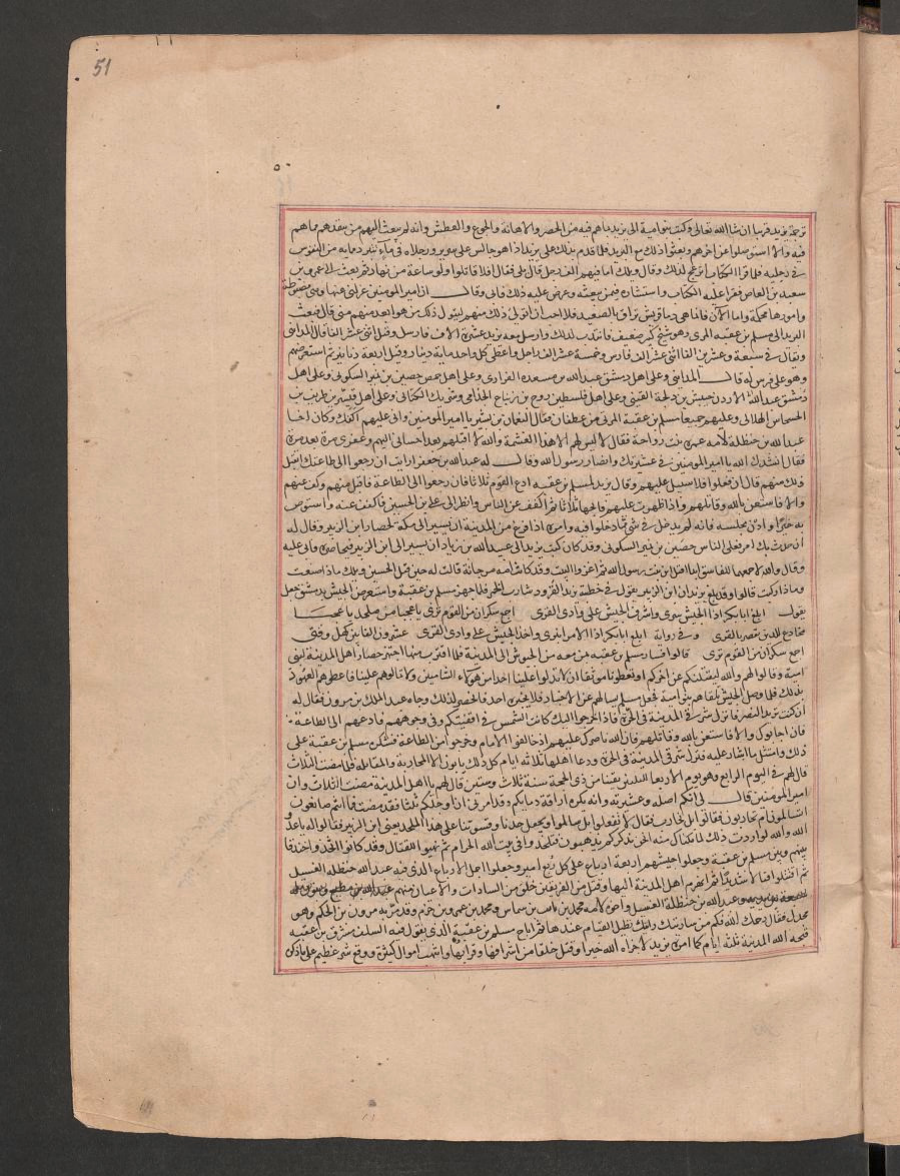 51
ترجمة يزيد قريبا ان شا الله تعالى وكتبت بنو امية الى يزيد بما هم فيه من الحصر والاهانة والجوع والعطش وانه لم يبعث اليهم من ينقذهم مما هم
فيه والا استوصلوا عن اخرهم وبعثوا ذلك مع البريد فلما قدم بذلك على يزيد اذا هو جالس على سرير ورجلاه في ماء يتبرد مما به من النقرس
في رجليه فلما قرا الكتاب انزعج لذلك وقال ويلك اما فيهم الف رجل قال بلى فقال افلا قاتلوا ولو ساعة من نهار ثم بعث الى عمرو بن
سعيد بن العاص فقرا عليه الكتاب واستشاره فيمن يبعثه وعرض عليه ذلك فابى وقال ان امير المومنين عزلني عنها وهي مضبوطة
وامورها محكمة واما الآن فانما هي دما قريش تراق بالصعيد فلا احب ان اتولى ذلك منهم ليتول ذلك من هو ابعد منهم مني قال فبعث
البريد الى مسلم بن عقبة المرى وهو شيخ كبير ضعيف فانتدب لذلك وارسل معه يزيد عشرة الاف فارس وقيل اثني عشر الفا قال المدايني
ويقال في سبعة وعشرين الفا اثني عشر الف فارس وخمسة عشر الف راجل واعطى كل واحد ماية دينار وقيل اربعة دنانير ثم استعرضهم
وهو على فرس له قال المدايني وعلى اهل دمشق عبد الله بن مسعدة الفزارى وعلى اهل حمص حصين بن نمير السكوني وعلى اهل
الاردن حبيش بن دلجة القيني وعلى اهل فلسطين روح بن زنباع الجذامي وشريك الكناني وعلى اهل قنسرين طريف بن
الحسحاس الهلالي وعليهم جميعا مسلم بن عقبة المرى من غطفان فقال النعمان بن بشير يا امير المومنين ولني عليهم اكفك وكان اخا
عبد الله بن حنظلة لامه عمرة بنت رواحة فقال لا ليس لهم الا هذا الغشمة والله لا اقتلهم بعد احساني اليهم وعفوى مرة بعد مرة
فقال انشدك الله يا امير المومنين في عشيرتك وانصار رسول الله وقال له عبد الله بن جعفر ارايت ان رجعوا الى طاعتك اتقبل
ذلك منهم قال ان فعلوا فلا سبيل عليهم وقال يزيد لمسلم بن عقبه ادع القوم ثلاثا فان رجعوا الى الطاعة فاقبل منهم وكف عنهم
والا فاستعن بالله وقاتلهم واذا ظهرت عليهم فابحها ثلاثا ثم اكفف عن الناس وانظر الى علي بن الحسين فاكفف عنه واستوص
به خيرا وادن مجلسه فانه لم يدخل في شي مما دخلوا فيه وامره اذا فرغ من المدينة ان يسير الى مكة لحصار ابن الزبير وقال له
ان حدث بك امر فعلى الناس حصين بن نمير السكوني وقد كان كتب يزيد الى عبيد الله بن زياد ان يسير الى ابن الزبير فيحاصره فابى عليه
وقال والله لا اجمعهما للفاسق ابدا اقتل ابن بنت رسول الله ثم اغزو البيت وقد كانت امه مرجانة قالت له حين قتل الحسين ويلك ماذا صنعت
وماذا ركبت قالوا وقد بلغ يزيد ان ابن الزبير يقول في خطبته يزيد القرود شارب الخمر فلما جهز مسلم بن عقبة واستعرض الجيش بدمشق جعل
يقول ابلغ ابا بكر اذا الجيش سرى واشرف الجيش على وادى القرى اجمع سكران من القوم ترى يا عجبا من ملحد يا عجبا
مخادع للدين يقفو بالفرى وفي رواية ابلغ ابا بكر اذا الامر انبرى ونزل الجيش على وادى القرى عشرون الفا بين كهل وفتى
اجمع سكران من القوم ترى قالوا وسار مسلم بن عقبه بمن معه من الجيوش الى المدينة فلما اقترب منها اجتهد اهل المدينة في حصار بني
امية وقالوا لهم والله لنقتلنكم عن اخركم او تعطونا موثقا ان لا تدلوا علينا احدا من هولاء الشاميين ولا تمالوهم علينا فاعطوهم العهود
بذلك فلما وصل الجيش تلقاهم بنو امية فجعل مسلم يسالهم عن الاخبار فلا يخبره احد فانحصر لذلك وجاءه عبد الملك بن مروان فقال له
ان كنت تريد النصر فانزل شرقي المدينة في الحرة فاذا خرجوا اليك كانت الشمس في اقفيتكم وفي وجوههم فادعهم الى الطاعة
فان اجابوك والا فاستعن بالله وقاتلهم فان الله ناصرك عليهم اذ خالفوا الامام وخرجوا من الطاعة فشكره مسلم بن عقبة على
ذلك وامتثل ما اشار عليه فنزل شرقي المدينة في الحرة ودعا اهلها ثلاثة ايام كل ذلك يابون الا المحاربة والمقاتلة فلما مضت الثلاث
قال لهم في اليوم الرابع وهو يوم الاربعا لليلتين بقيتا من ذى الحجة سنة ثلاث وستين قال لهم يا اهل المدينة مضت الثلاث وان
امير المومنين قال لي انكم اصله وعشيرته وانه يكره اراقة دمايكم وقد امرني ان اوجلكم ثلثا فقد مضت فما انتم صانعون
اتسالمون ام تحاربون فقالوا بل نحارب فقال لا تفعلوا بل سالموا ونجعل جدنا وقوتنا على هذا الملحد يعني ابن الزبير فقالوا له يا عدو
الله والله لو اردت ذلك لما مكناك منه انحن نذركم تذهبون فتلحدوا في بيت الله الحرام ثم تهيوا للقتال وقد كانوا اتخذوا خندقا
بينهم وبين مسلم بن عقبة وجعلوا جيشهم اربعة ارباع على كل ربع امير وجعلوا اجل الارباع الذى فيه عبد الله بن حنظلة الغسيل
ثم اقتتلوا قتالا شديدا ثم انهزم اهل المدينة اليها وقتل من الفريقين خلق من السادات والاعيان منهم عبد الله بن مطيع وبنون له
سبعة بين يديه وعبد الله بن حنظلة الغسيل واخوه لامه محمد بن ثابت بن شماس ومحمد بن عمرو بن حزم وقد مر به مروان بن الحكم وهو
مجدل فقال رحمك الله فكم من سارية قد رايتك تطيل القيام عندها ثم اباح مسلم بن عقبة الذى يقول فيه السلف مسرف بن عقبه
قبحه الله المدينة ثلثة ايام كما امره يزيد لا جزاه الله خيرا وقتل خلقا من اشرافها وقرايها وانتهب اموال كثيرة ووقع شر عظيم على ما ذكره